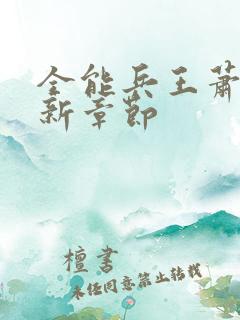 全能兵王萧
新章节
檀书
未经同意禁止转载